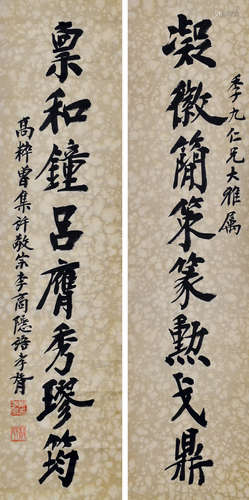 季九仁兄大雅属
凝徽簡策篆勲戈鼎
禀和鐘呂膺秀璆筠
高梓曾集許敬宗李商隱語